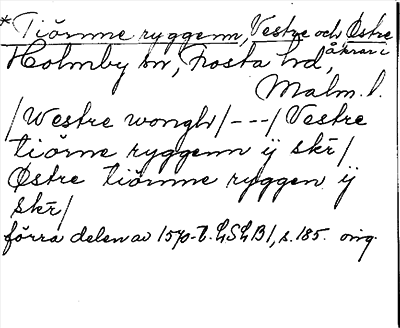 *Tiörnne ryggenn, Vestre och Østre
Holmby sn, Frosta hd, åkrar i
Malm. l.
/Westre wongh/---/Vestre
tiörne ryggenn ij skr/
Østre tiömme ryggen ij
skr/
förra delen av 1570-t. LSLB1, s. 185. orig.